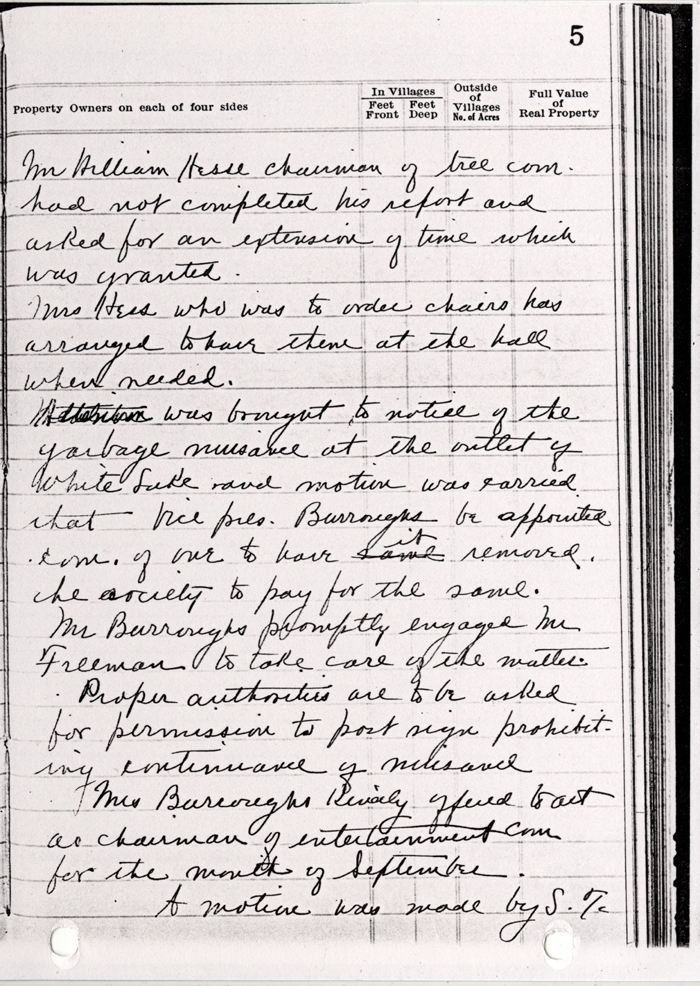 5
Property Owners on each of four sides
In Villages
Feet Front
Feet Deep
Outside of Villages No. of Acres
Full Value of Real Property
Mr William Hesse chairman of tree com.
had not completed his report and
asked for an extension of time which
was granted.
Mrs Hess who was to order chairs has
arranged to have them at the hall
when needed.
was brought to notice of the
garbage nuisance at the outlet of
White Lake and motion was carried
that Vice pres. Burroughs be appointed
com. of one to have same it removed.
the society to pay for the same.
Mr Burroughs promptly engaged Mr
Freeman to take care of the matter.
Proper authorities are to be asked
for permission to post sign prohibit-
ing continuance of nuisance
Mrs Burroughs kindly offered to act
as chairman of entertainment com
for the month of September.
A motion was made by S. T.